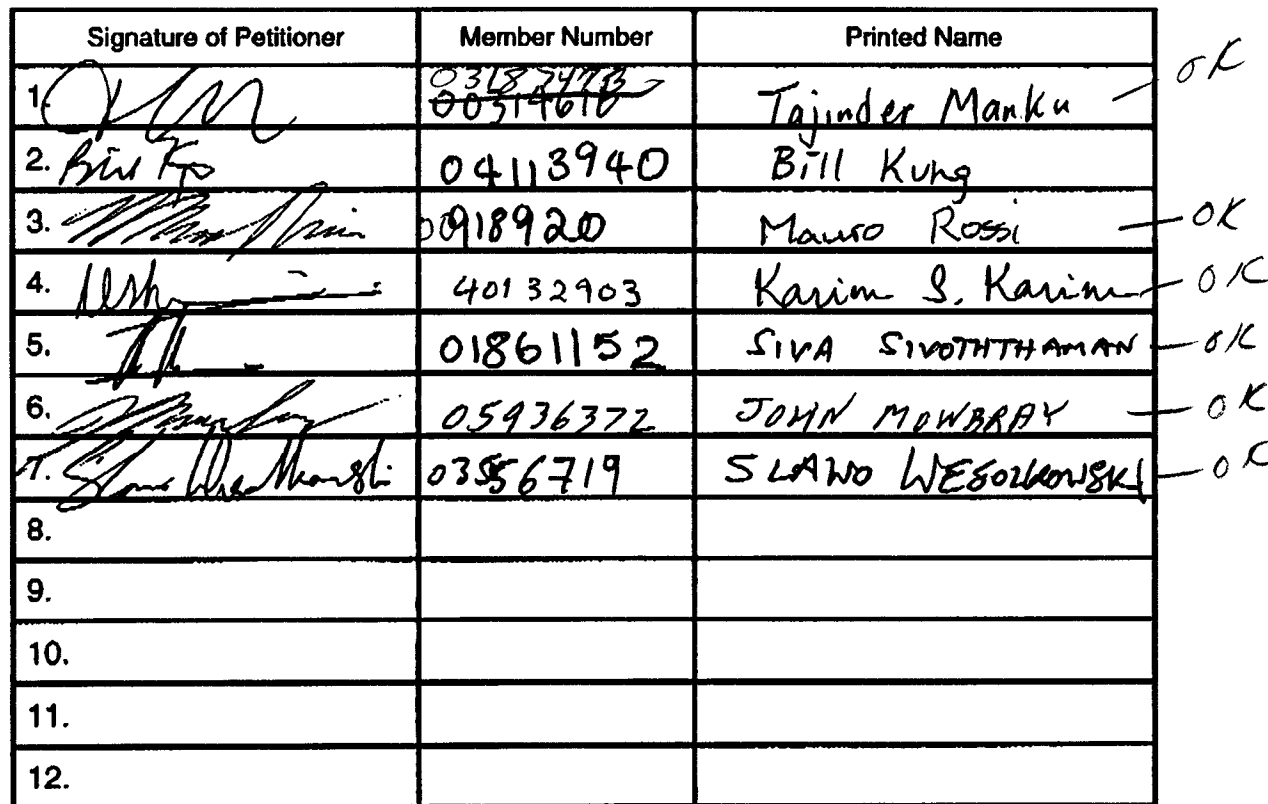 Signature of Petitioner Member Number Printed Name
1. Tajinder Manku OK
2. 04113940 Bill Kung
3. 00918920 Mauro Rossi - OK
4. 40132903 Karim S. Karim - OK
5. 01861152 SIVA SIVOTHTHAMAN - OK
6. 05936372 JOHN MOWBRAY - OK
7. 03556719 SLAWO WESOLKOWSKI - OK
8.
9.
10.
11.
12.